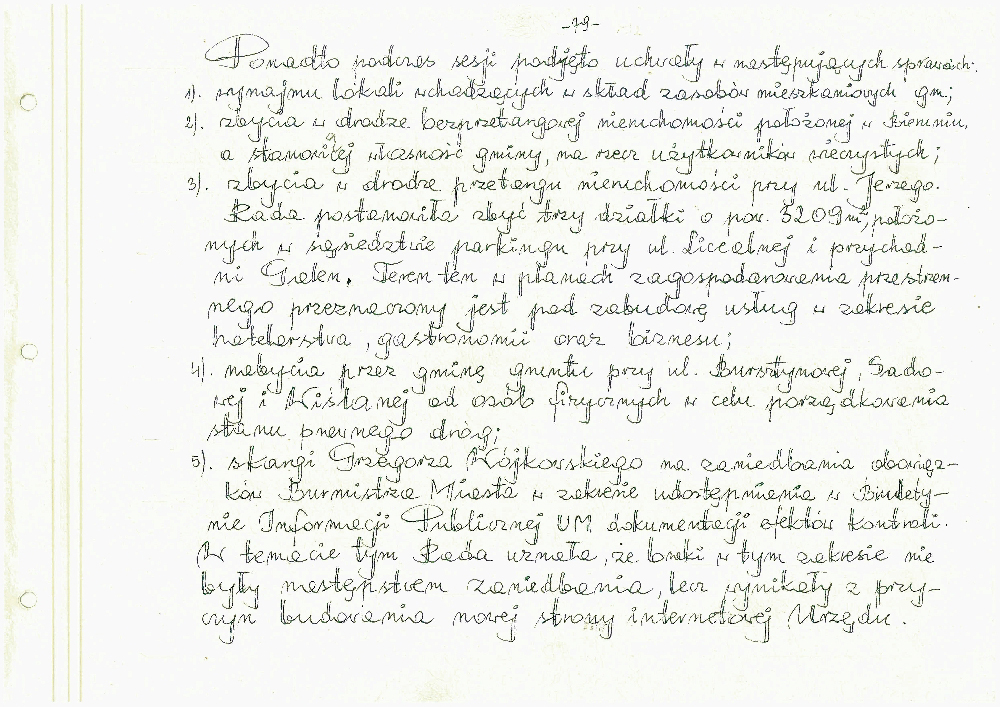 -79-
Ponadto podczas sesji podjęto uchwały w następujących sprawach:
1). wynajmu lokali wchodzących w skład zasobów mieszkaniowych gm;
2). zbycia w drodze bezprzetargowej nieruchomości położonej w Bieruniu,
a stanowiącej własność gminy, na rzecz użytkowników wieczystych;
3). zbycia w drodze przetargu nieruchomości przy ul. Jerzego.
Rada postanowiła zbyć trzy działki o pow. 5209m², położo-
nych w sąsiedztwie parkingu przy ul. Licealnej i przychod-
ni Galen. Teren ten w planach zagospodarowania przestrzen-
nego przeznaczony jest pod zabudowę usług w zakresie
hotelarstwa, gastronomii oraz biznesu;
4). nabycia przez gminę gruntu przy ul. Bursztynowej, Sado-
wej i Wiślanej od osób fizycznych w celu porządkowania
stanu prawnego dróg;
5). skargi Grzegorza Wójkowskiego na zaniedbania obowiąz-
ków Burmistrza Miasta w zakresie udostępnienia w Biulety-
nie Informacji Publicznej UM dokumentacji efektów kontroli.
W temacie tym Rada uznała, że braki w tym zakresie nie
były następstwem zaniedbania, lecz wynikały z przy-
czyn budowania nowej strony internetowej Urzędu.